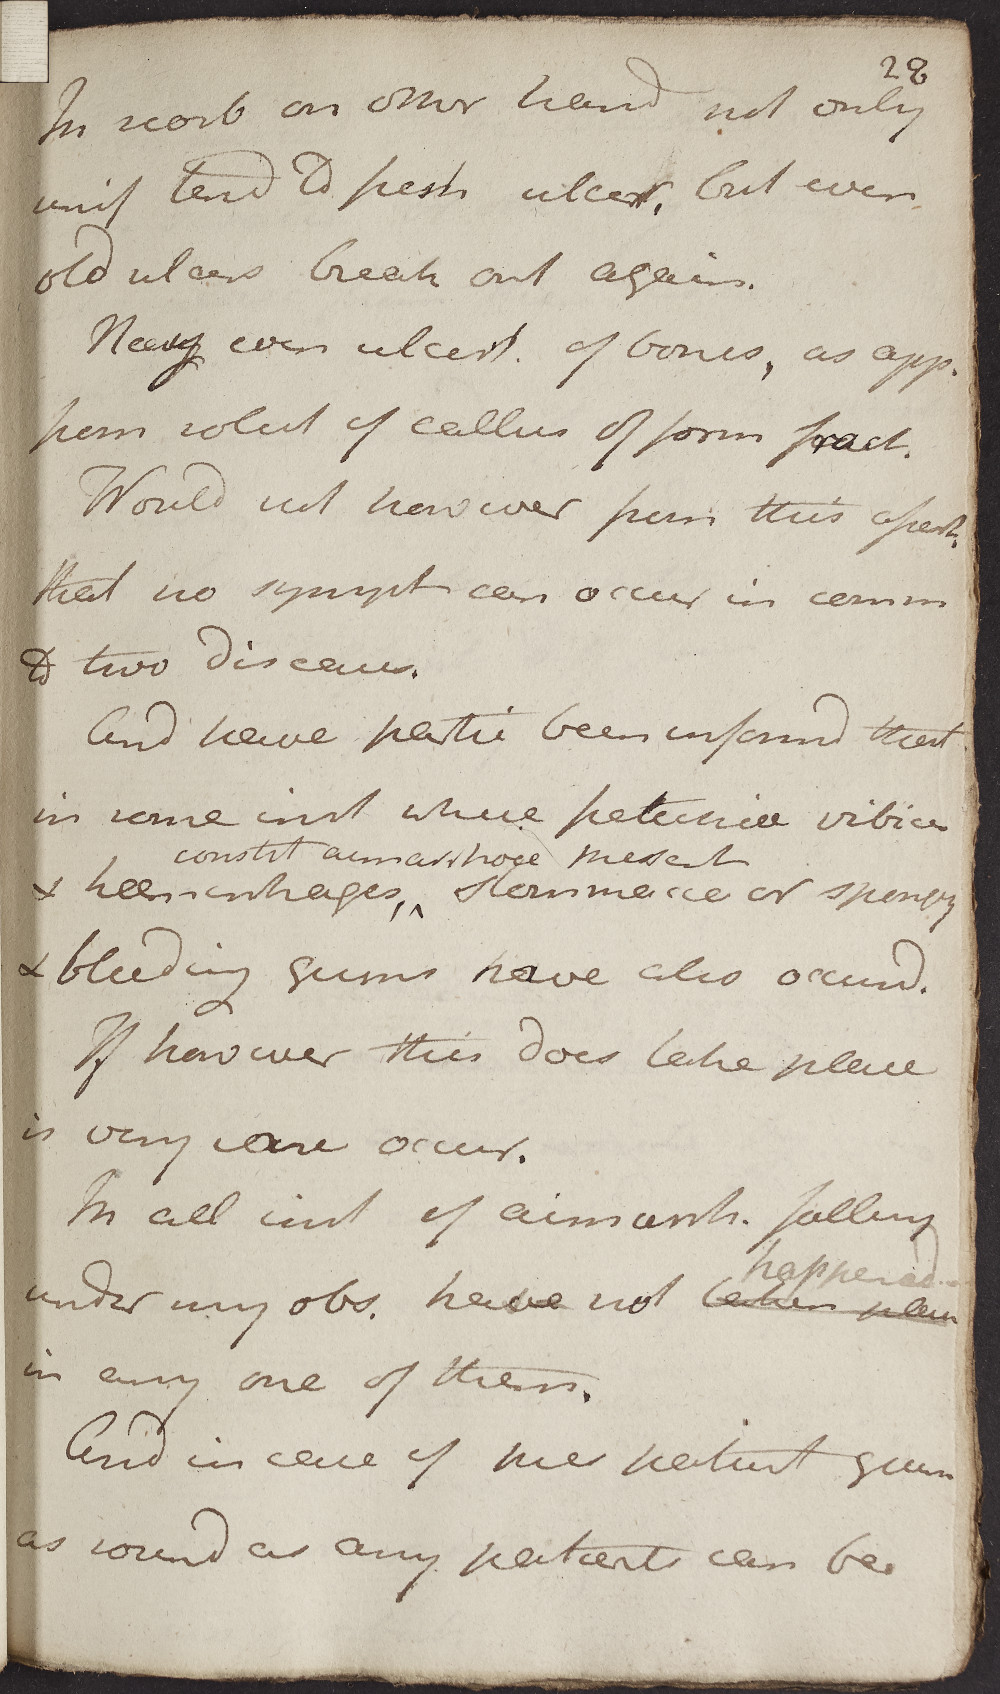 28
In scorb on other hand not only
unif tend to fresh ulcer, but even
old ulcers break out again.
Nay even ulcerat. of bones, as app.
from solut of callus of form fract.
Would not however from this assert,
that no sympt can occur in comm
to two diseases.
And have partic been informd that
in some inst where petechiae vibices
constit aimorrhoge present
& heemorrhages, ^ stommacae or spongy
& bleeding gums have also occurd.
If however this does take place
is very rare occur.
In all inst of aimorrh. falling
happened
under my obs. have not taken place
in any one of them.
And in case of pres patient gums
as sound as any patients can be.